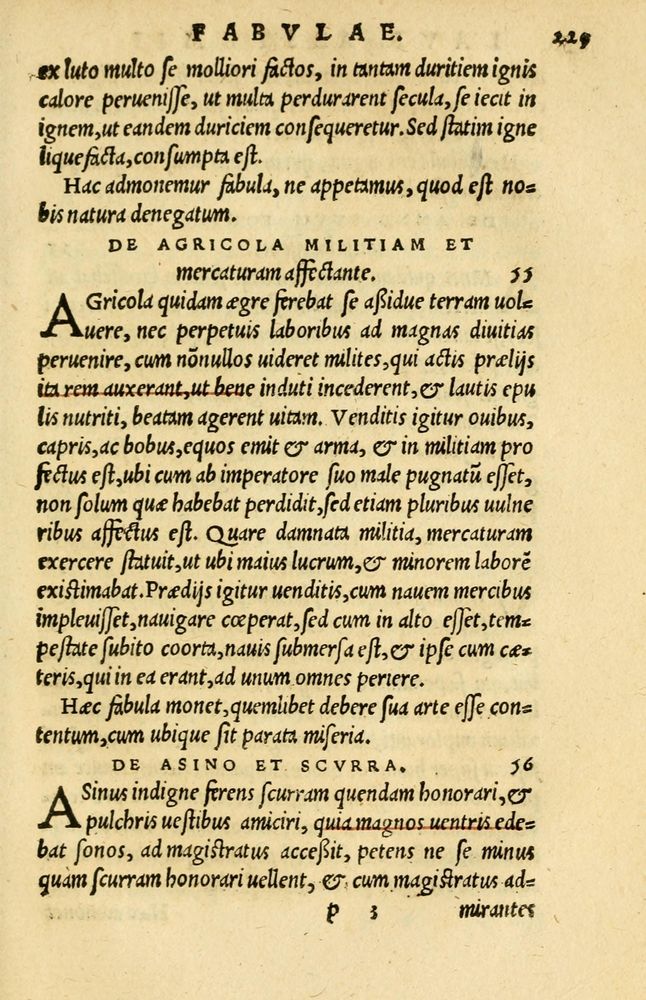 FABVLAE. 229
ex luto multo se molliori factos, in tantam duritiem ignis
calore peruenisse, ut multa perdurarent secula, se iecit in
ignem, ut eandem duriciem consequeretur. Sed statim igne
liquefacta, consumpta est.
Hac admonemur fabula, ne appetamus, quod est no-
bis natura denegatum.
DE AGRICOLA MILITIAM ET
mercaturam affectante. 55
AGricola quidam ægre ferebat se aßidue terram uol-
uere, nec perpetuis laboribus ad magnas diuitias
peruenire, cum nōnullos uideret milites, qui actis prælijs
ita rem auxerant, ut bene induti incederent, & lautis epu
lis nutriti, beatam agerent uitam. Venditis igitur ouibus,
capris, ac bobus, equos emit & arma, & in militiam pro
fectus est, ubi cum ab imperatore suo male pugnatū esset,
non solum quæ habebat perdidit, sed etiam pluribus uulne
ribus affectus est. Quare damnata militia, mercaturam
exercere statuit, ut ubi maius lucrum, & minorem laborē
existimabat. Prædijs igitur uenditis, cum nauem mercibus
impleuisset, nauigare cœperat, sed cum in alto esset, tem-
pestate subito coorta, nauis submersa est, & ipse cum cæ-
teris, qui in ea erant, ad unum omnes periere.
Hæc fabula monet, quemlibet debere sua arte esse con-
tentum, cum ubique sit parata miseria.
DE ASINO ET SCVRRA. 56
ASinus indigne ferens scurram quendam honorari, &
pulchris uestibus amiciri, quia magnos uentris ede-
bat sonos, ad magistratus acceßit, petens ne se minus
quam scurram honorari uellent, & cum magistratus ad-
p 3 mirantes